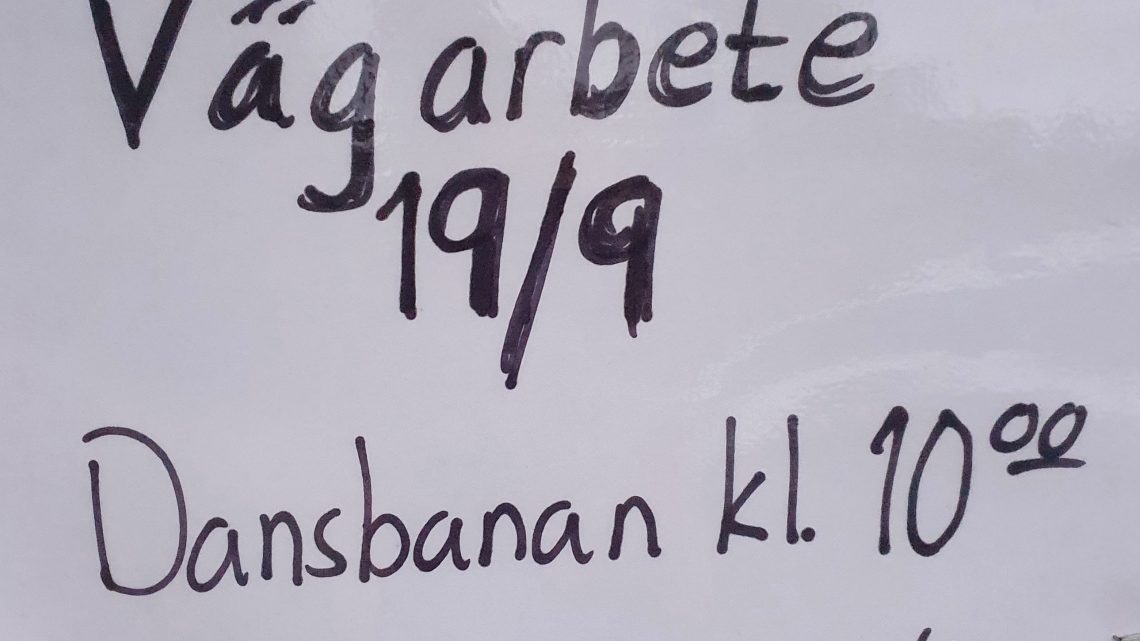 Vägarbete
19/9
Dansbanan kl. 10⁰⁰